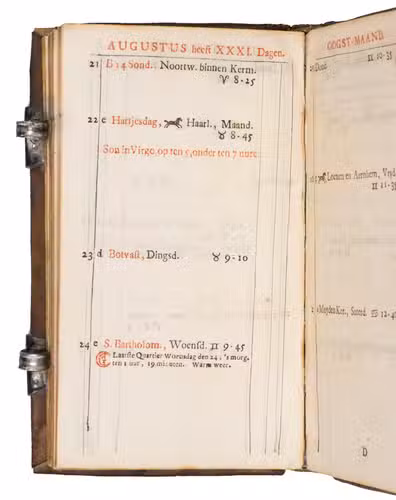 AUGUSTUS heeft XXXI. Dagen.
21 B 14 Sond. Noortw. binnen Kerm.
♈ 8-25
22 c Hartjesdag, Haarl., Maand.
♉ 8-45
Son in Virgo, op ten 5, onder ten 7 uure
23 d Botvast, Dingsd. ♉ 9-10
24 e S. Bartholom., Woensd. ♊ 9-45
Laatste Quartier Woensdag den 24: 's morg.
ten 1 uur, 19 minuten. Warm weer.
OOGST-MAAND
♊ 10-35
Loenen en Aernhem, Vryd
♊ 11-35
12-4
D